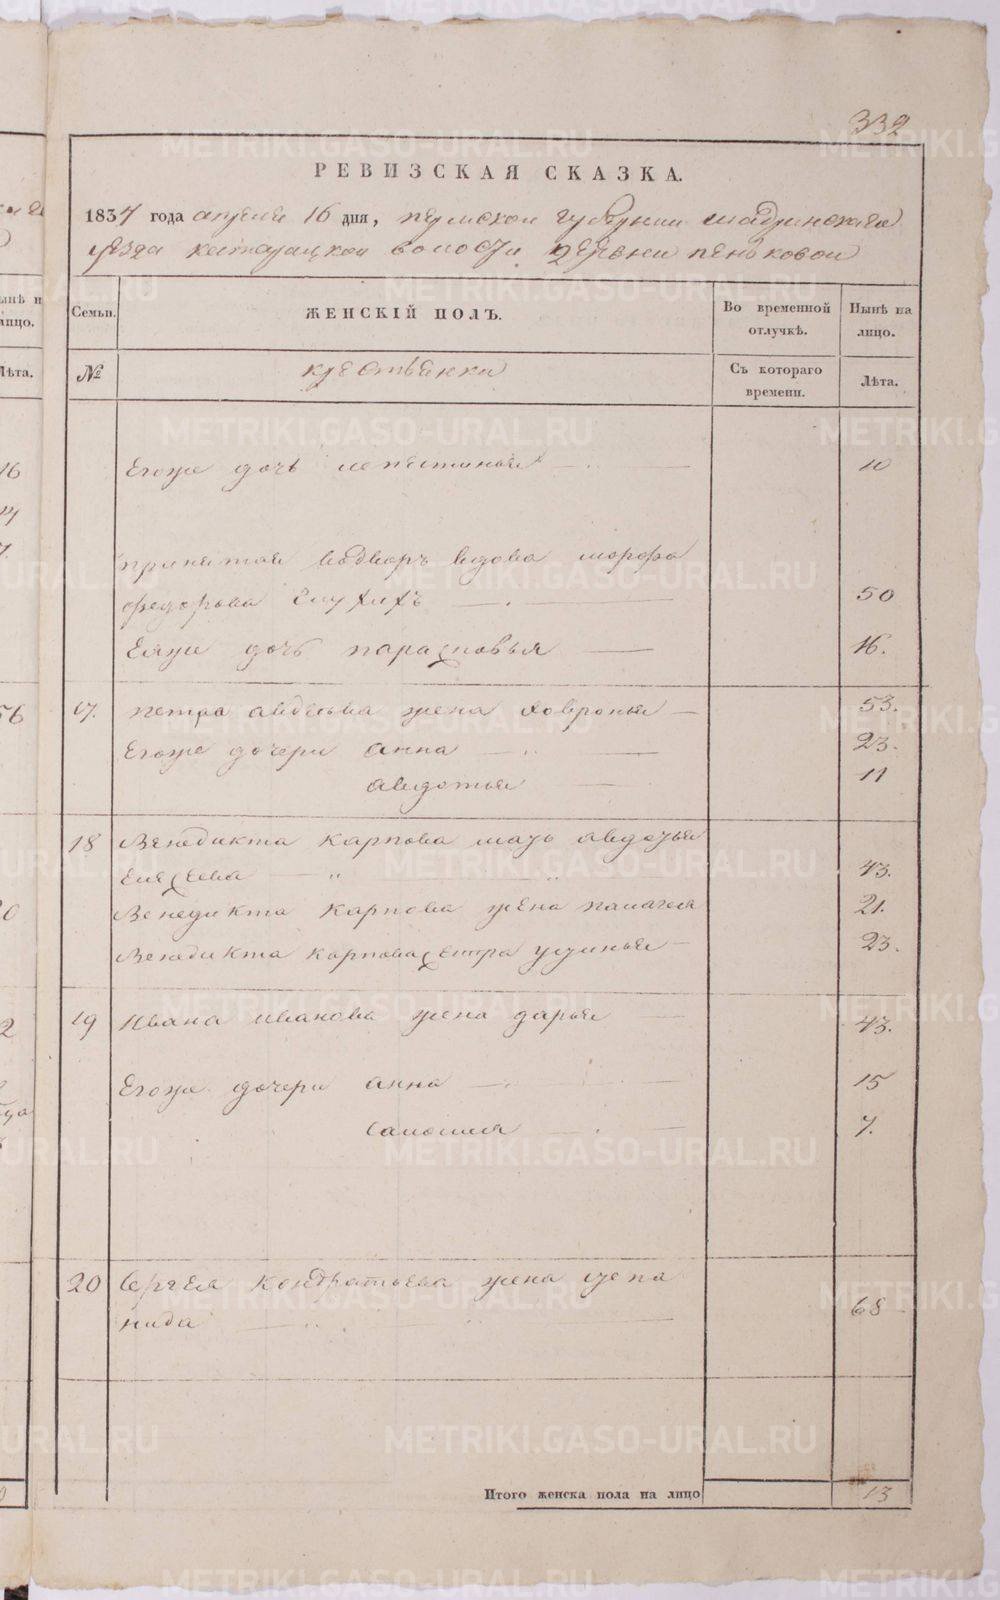 332
РЕВИЗСКАЯ СКАЗКА.
1834 года апреля 16 дня, пермской губернии шадринскаго
уезда катайцкой волости деревни пеньковой
Семьи. ЖЕНСКІЙ ПОЛЪ. Во временной отлучкѣ. Нынѣ на лицо.
№ крестьянки Съ котораго времени. Лѣта.
Егоже дочь 10
принятой вдворъ вдова марфа
федорова глухихъ 50
Еяже дочь парасковья 16.
17. петра авдеева жена ховронья 53.
Егоже дочери анна 23.
авдотья 11
18 Венедикта карпова мать авдотья
43.
Венедикта карпова жена палагея 21.
Венедикта карпова сестра устинья 23.
19 Ивана иванова жена дарья 43.
Егоже дочери анна 15
7.
20 Сергея кондратьева жена степа
нида 68
Итого женска пола на лицо 13
METRIKI.GASO-URAL.RU